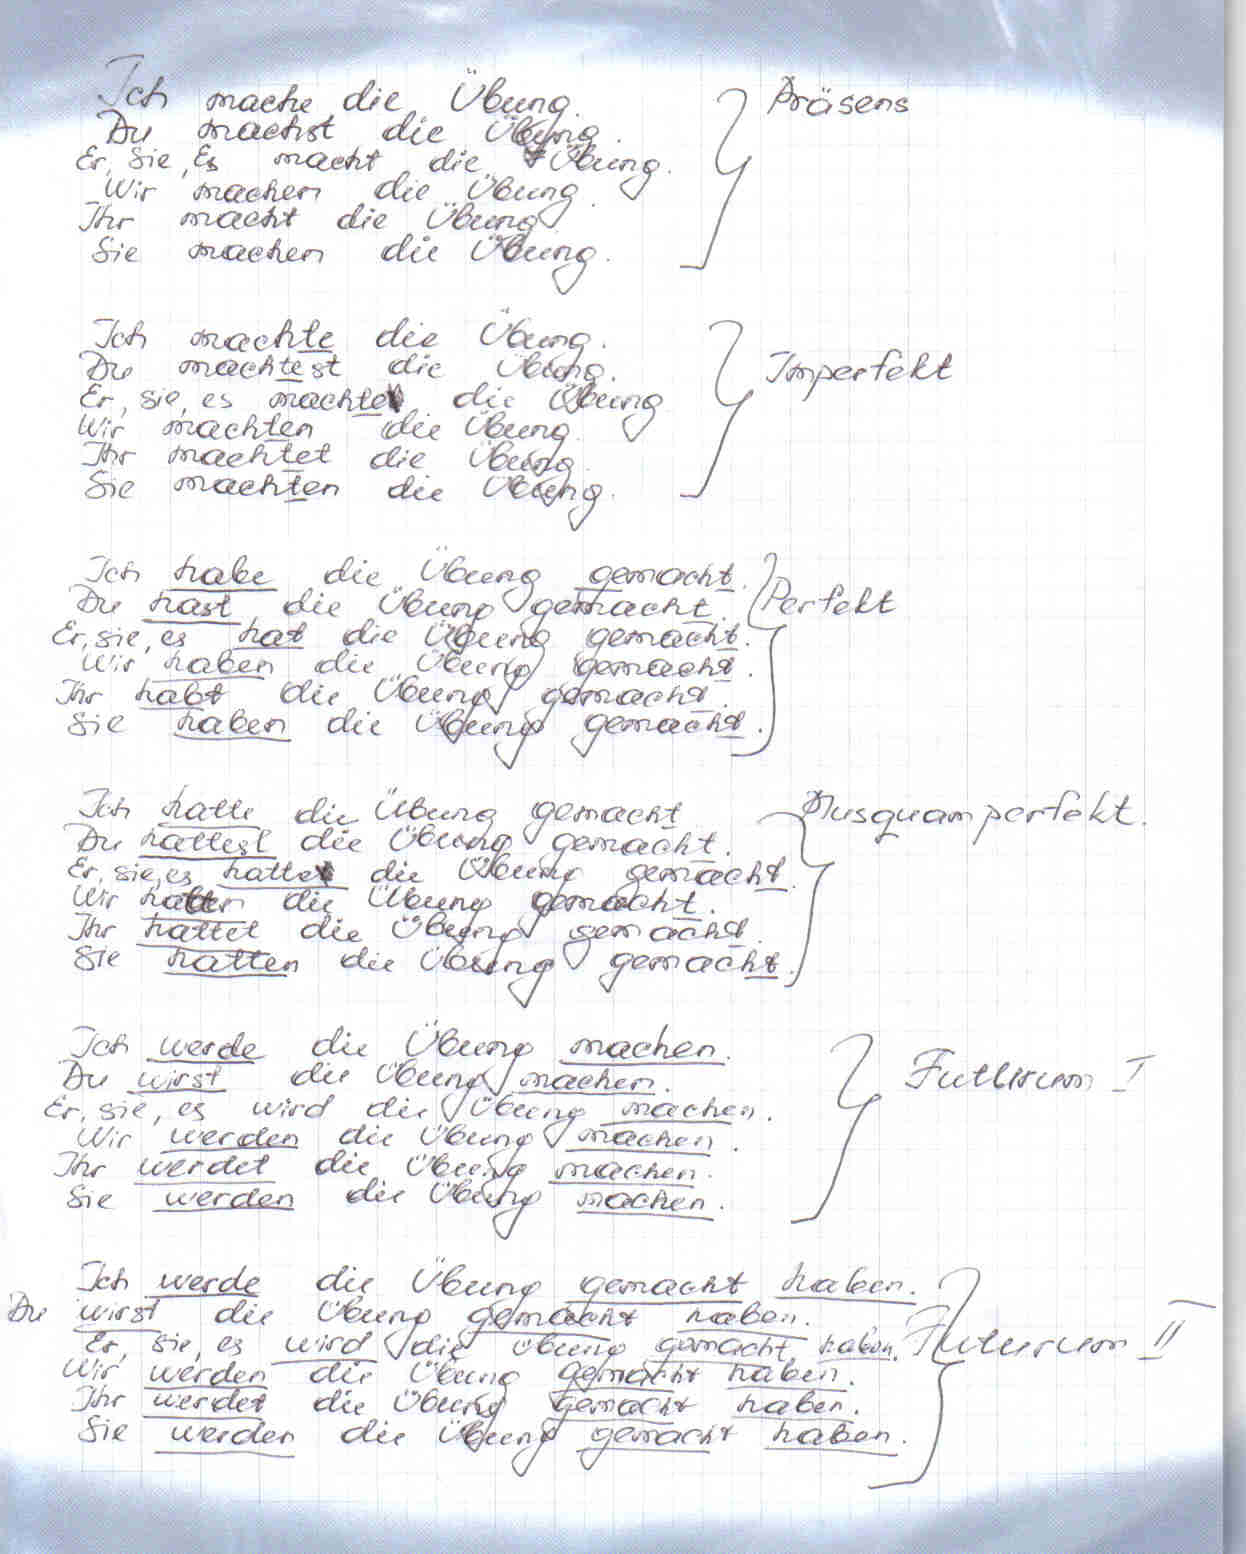 Ich mache die Übung. Präsens
Du machst die Übung.
Er, Sie, Es macht die Übung.
Wir machen die Übung.
Ihr macht die Übung
Sie machen die Übung.
Ich machte die Übung.
Du machtest die Übung. Imperfekt
Er, sie, es machte die Übung
Wir machten die Übung
Ihr machtet die Übung.
Sie machten die Übung.
Ich habe die Übung gemacht.
Du hast die Übung gemacht. Perfekt
Er, sie, es hat die Übung gemacht.
Wir haben die Übung gemacht.
Ihr habt die Übung gemacht.
Sie haben die Übung gemacht.
Ich hatte die Übung gemacht Plusquamperfekt.
Du hattest die Übung gemacht.
Er, sie, es hatte die Übung gemacht.
Wir hatten die Übung gemacht.
Ihr hattet die Übung gemacht.
Sie hatten die Übung gemacht.
Ich werde die Übung machen.
Du wirst die Übung machen. Futurum I
Er, sie, es wird die Übung machen.
Wir werden die Übung machen.
Ihr werdet die Übung machen.
Sie werden die Übung machen.
Ich werde die Übung gemacht haben.
Du wirst die Übung gemacht haben.
Er, sie, es wird die Übung gemacht haben. Futurum II
Wir werden die Übung gemacht haben.
Ihr werdet die Übung gemacht haben.
Sie werden die Übung gemacht haben.